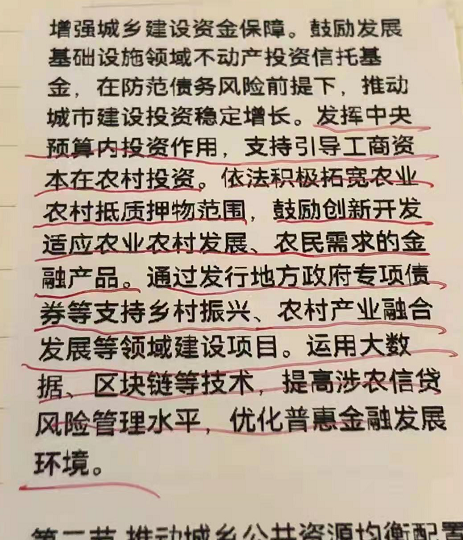 增强城乡建设资金保障。鼓励发展
基础设施领域不动产投资信托基
金，在防范债务风险前提下，推动
城市建设投资稳定增长。发挥中央
预算内投资作用，支持引导工商资
本在农村投资。依法积极拓宽农业
农村抵质押物范围，鼓励创新开发
适应农业农村发展、农民需求的金
融产品。通过发行地方政府专项债
券等支持乡村振兴、农村产业融合
发展等领域建设项目。运用大数
据、区块链等技术，提高涉农信贷
风险管理水平，优化普惠金融发展
环境。
第二节 推动城乡公共资源均衡配置